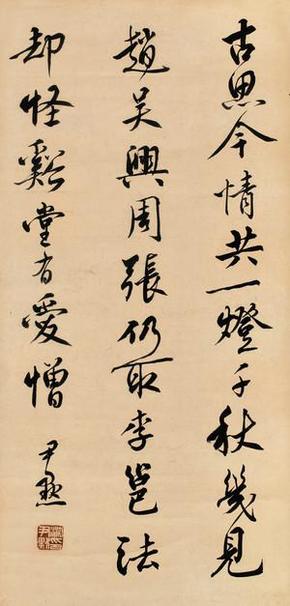 古思今情共一燈千秋幾見
趙吳興周張仍取李邕法
却怪谿堂有愛憎
尹默